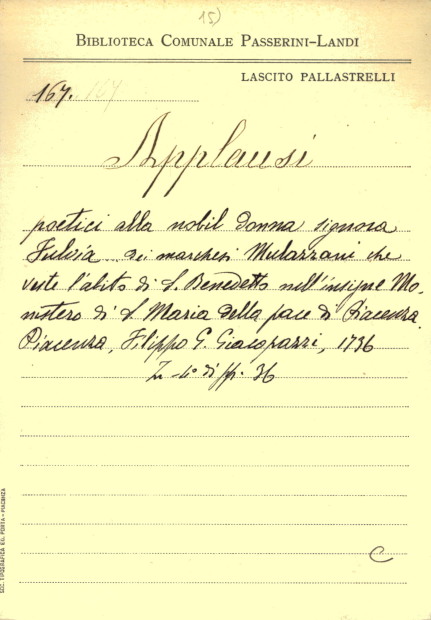 15)
BIBLIOTECA COMUNALE PASSERINI-LANDI
LASCITO PALLASTRELLI
167. 167
Applausi
poetici alla nobil donna signora
Fulvia dei marchesi Mulazzani che
veste l'abito di S. Benedetto nell'insigne Mo-
nistero di S. Maria della pace di Piacenza.
Piacenza, Filippo G. Giacopazzi, 1736
In 4° di ff. 36
C
SOC. TIPOGRAFICA ED. PORTA - PIACENZA